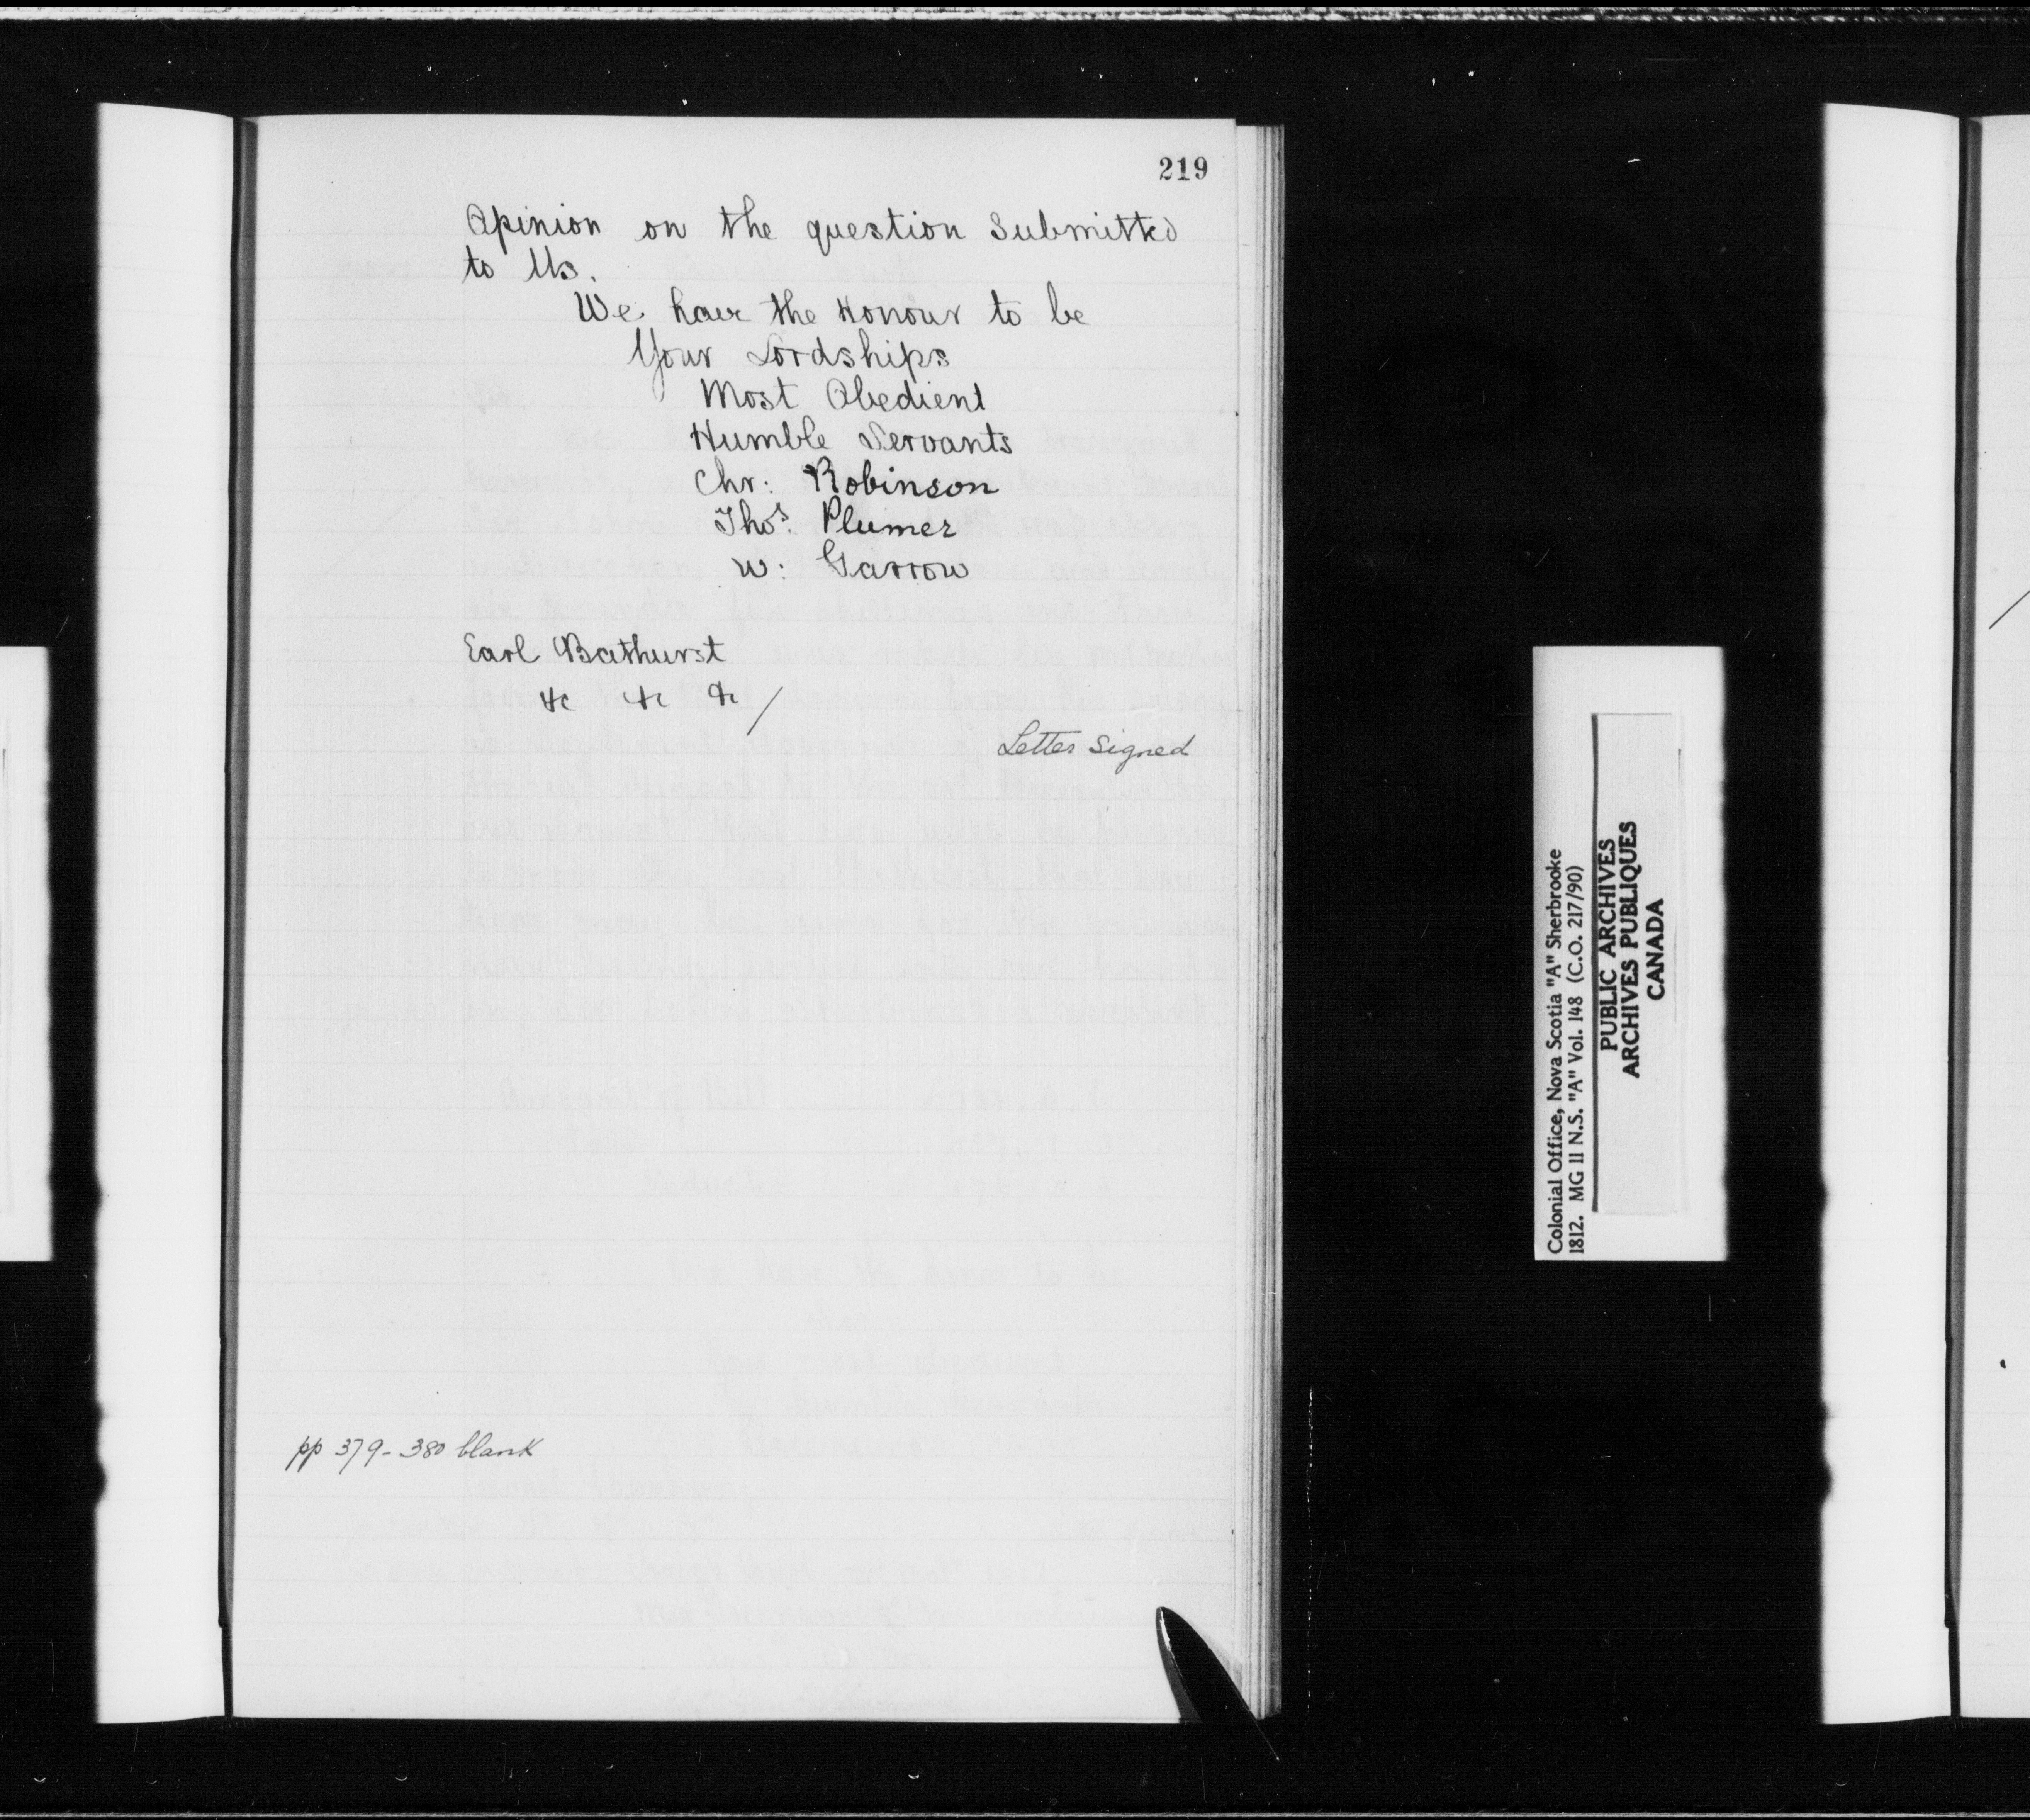 219
Opinion on the question Submitted
to Us.
We have the Honour to be
Your Lordships
Most Obedient
Humble Servants
Chr: Robinson
Thos. Plumer
W: Garrow
Earl Bathurst
&c &c &c /
Letter Signed
pp 379-380 blank
Colonial Office, Nova Scotia "A" Sherbrooke
1812. MG 11 N.S. "A" Vol. 148 (C.O. 217/90)
PUBLIC ARCHIVES
ARCHIVES PUBLIQUES
CANADA